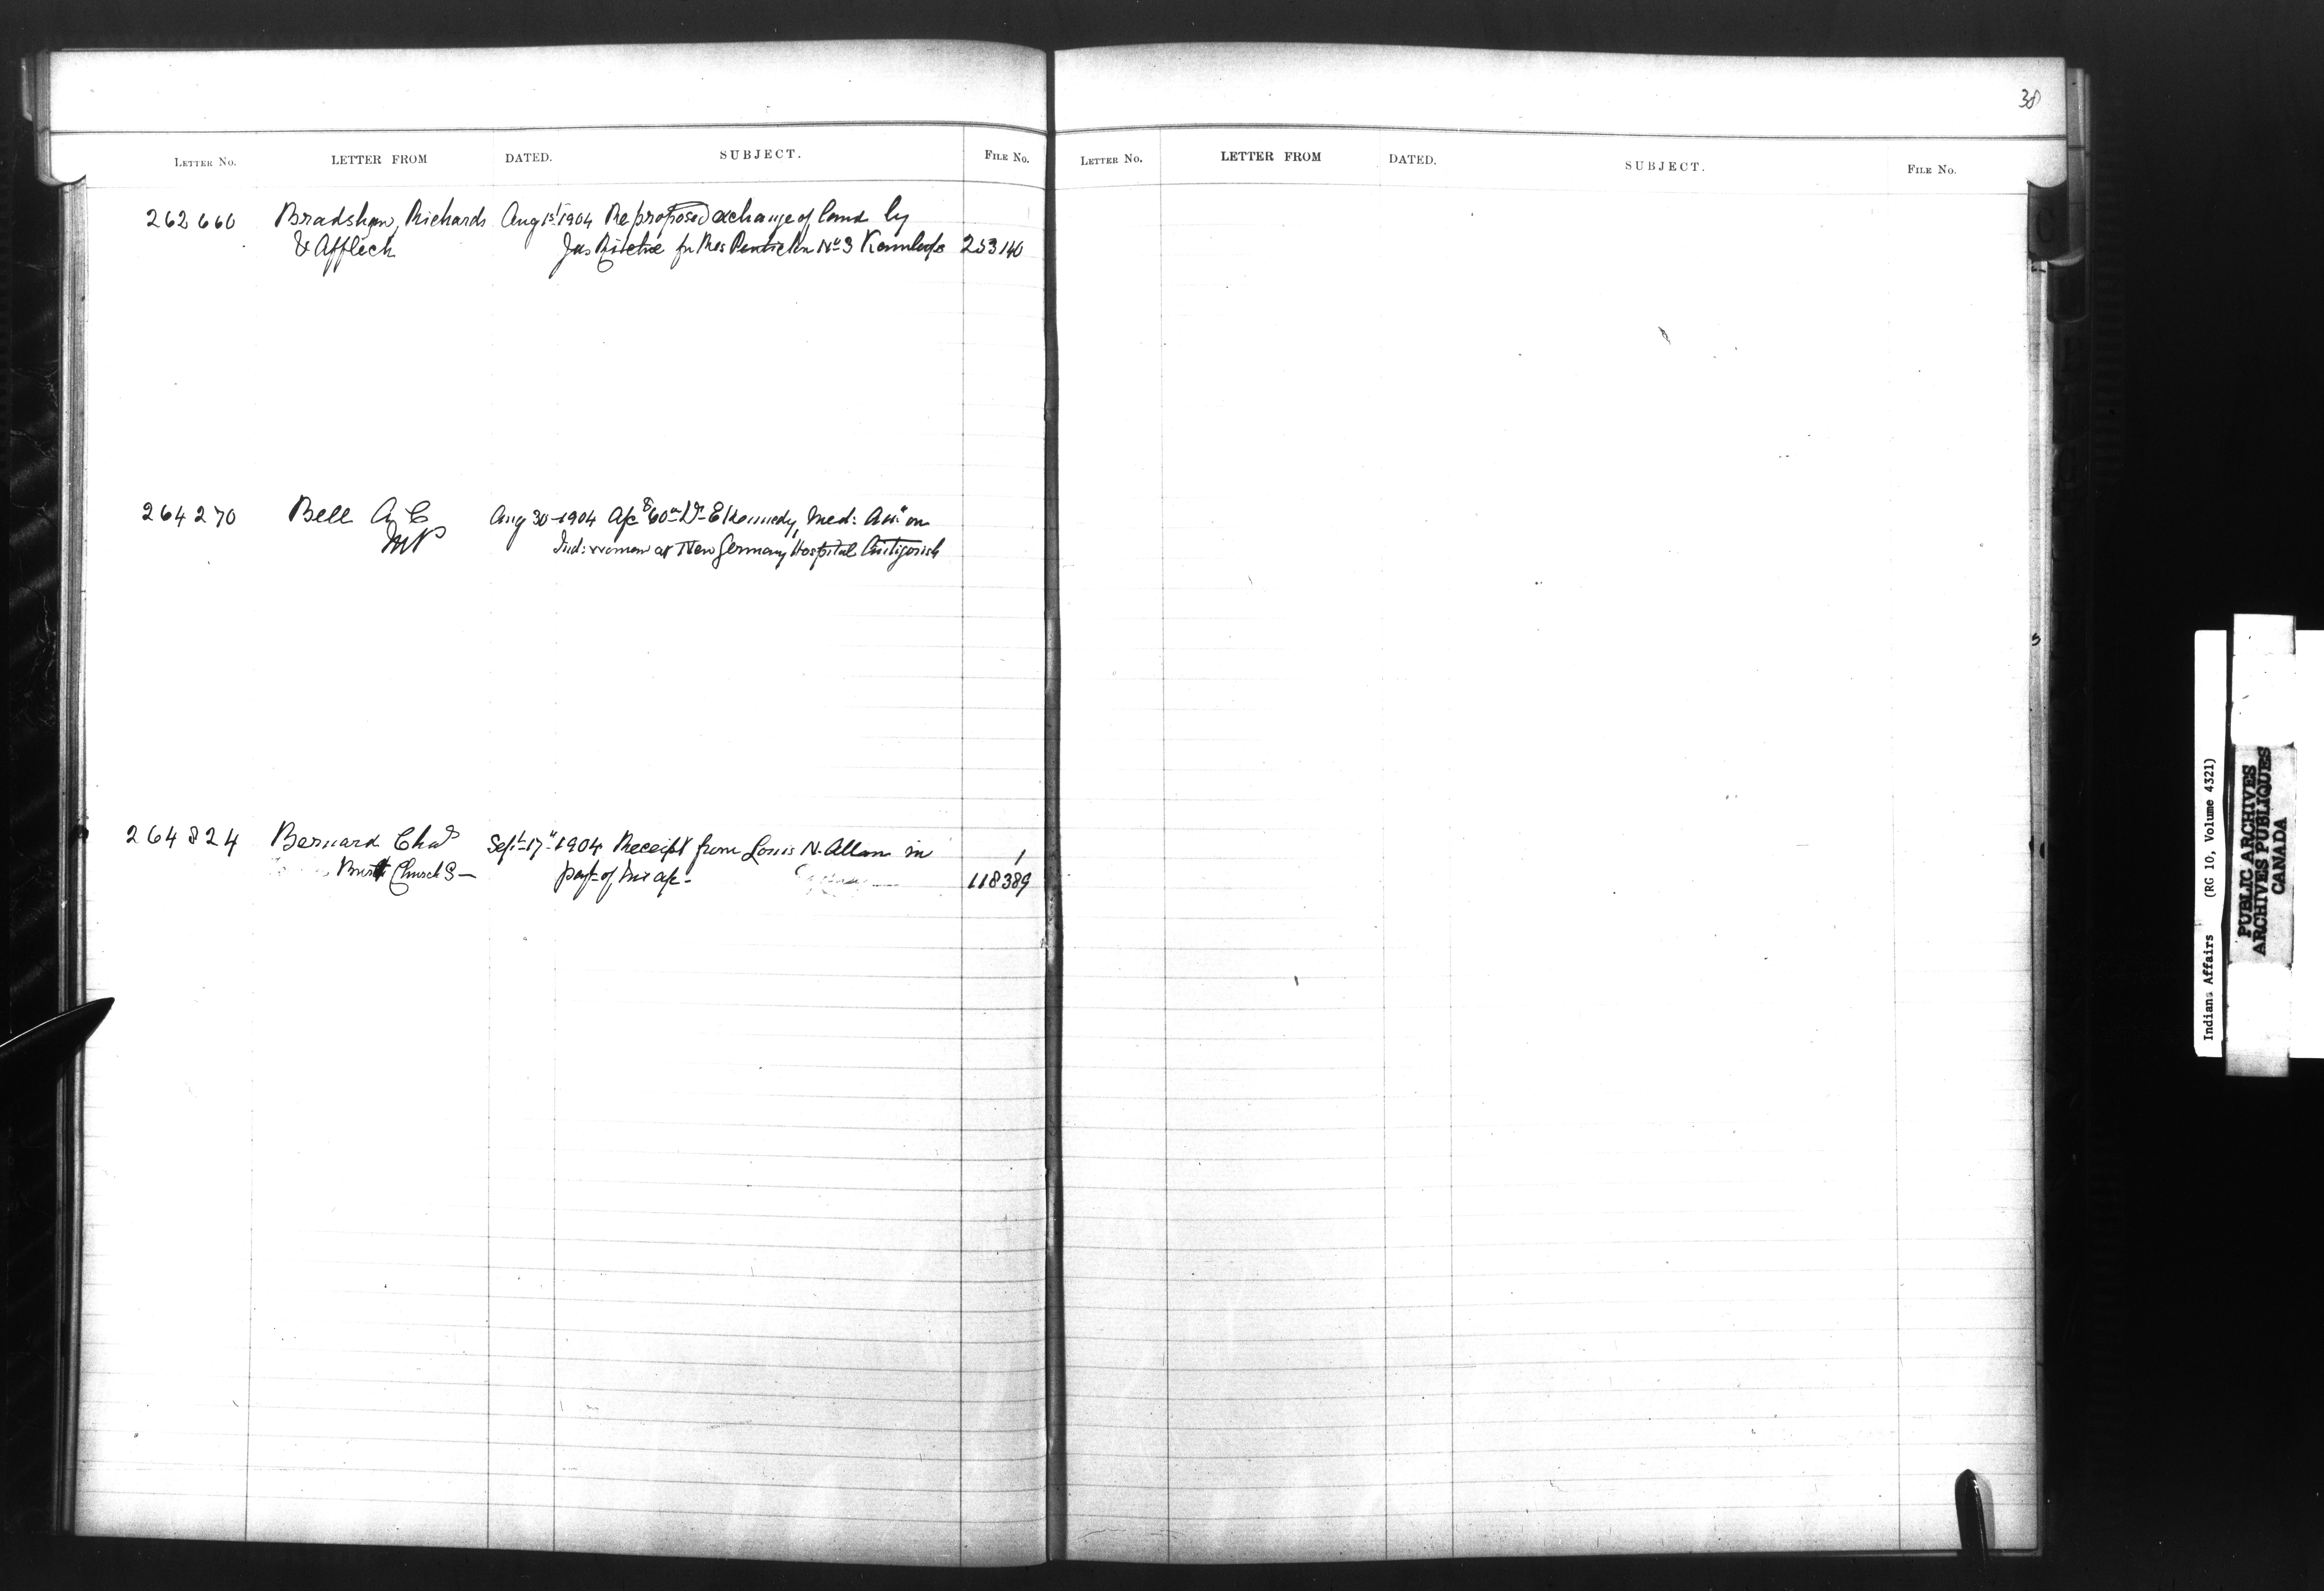 38
LETTER NO. LETTER FROM DATED. SUBJECT. FILE NO.
LETTER NO. LETTER FROM DATED. SUBJECT. FILE NO.
262660 Bradshaw, Richards Aug 1st 1904 Re proposed exchange of land by
& Affleck Jas Ritchie for Res Penticton No 3 Kamloops 253140
264270 Bell A C Aug 30 1904 Dr E Kennedy, Med: on
MP Ind: woman at New Germany Hospital Antigonish
264824 Bernard Chas Sept 17" 1904 Receipt from Louis N. Allan in 1
Church S- of his a/c- 118389
C
Indians Affairs (RG 10, Volume 4321)
PUBLIC ARCHIVES
ARCHIVES PUBLIQUES
CANADA